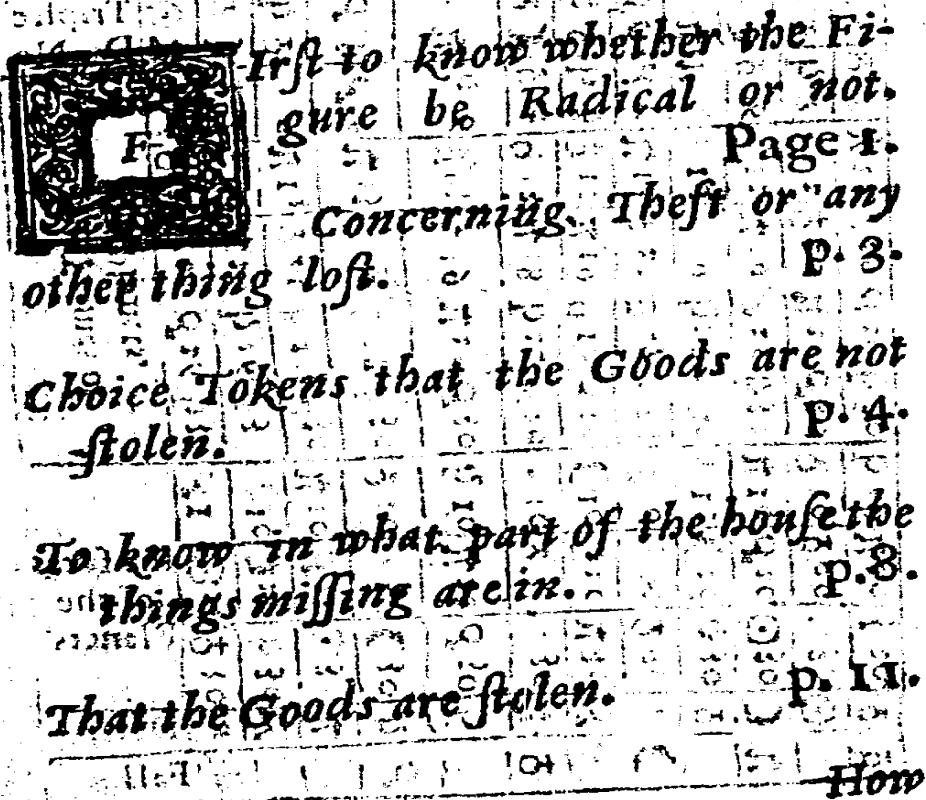 FIrſt to know whether the Fi-
gure be Radical or not.
Page 1.
Concerning Theft or any
other thing loſt. p. 3.
Choice Tokens that the Goods are not
ſtolen. p. 4.
To know in what part of the houſe the
things miſſing are in. p. 8.
That the Goods are ſtolen. p. 11.
How